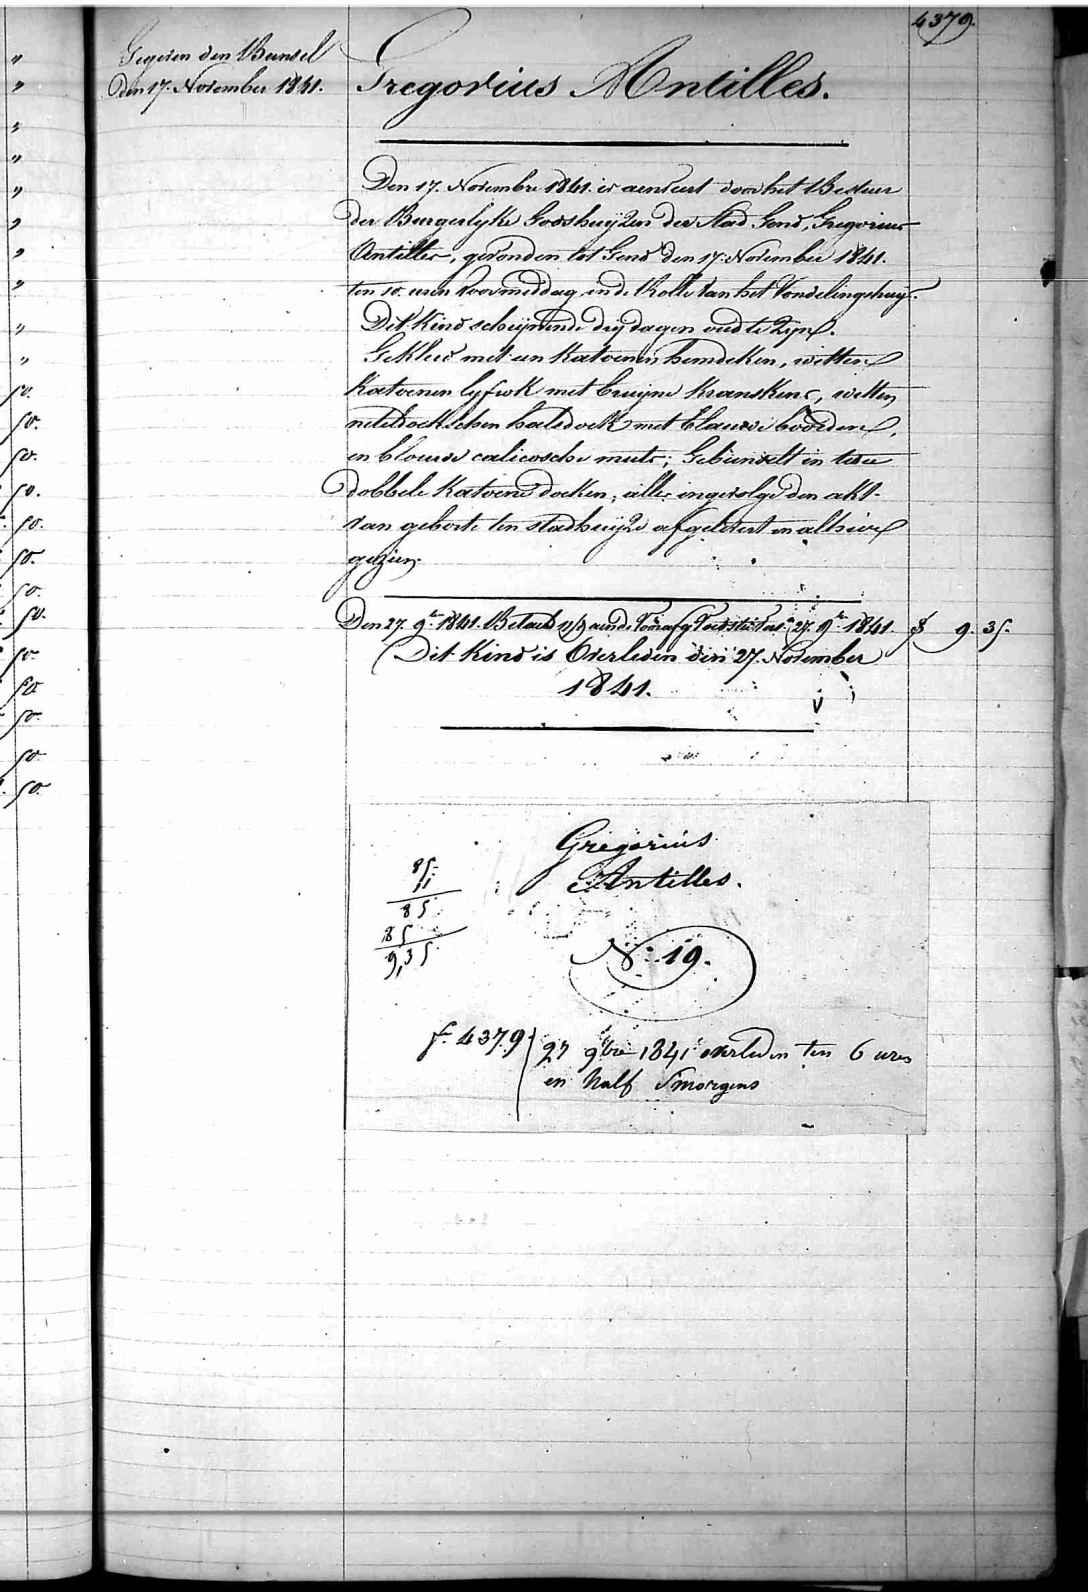 4379.
Gegeven den Bunsel
den 17. November 1841.
Gregorius Antilles.
Den 17. November 1841. is aenveert door het Bestuer
der Burgerlyke Godshuyzen der Stad Gend, Gregorius
Antilles, gevonden tot Gend den 17. November 1841.
ten 10. uren voormiddag in de Rolle van het Vondelingshuys.
Dit Kind schynende dry dagen oud te zyn.
Gekleed met een Katoenen hemdeken, witten
Katoenen lyfrok met bruyne kranskens, witten
neteldoekschen halsdoek met blauwe boorden,
en blauwe calicosche muts; Gebunselt in twee
dobbele Katoene doeken, alles ingevolge den akt
van geboorte ten stadhuyze afgelevert en alhier
gezien.
Den 27. 9.^e 1841. Betaelt 11/ aen de 27. 9.^e 1841. 9. 35.
Dit Kind is Overleden den 27. November
1841.
Gregorius
Antilles.
85.
11
85
85
9,35
N.º 19.
f.º 4379
27 9bre 1841 overleden ten 6 uren
en half Smorgens
"
"
"
"
"
"
"
"
"
"
50.
50.
50.
50.
50.
50.
50.
50.
50.
50.
50.
50.
50.